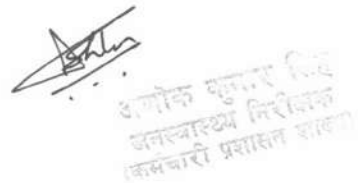 अशोक कुमार सिंह
जनस्वास्थ्य निरीक्षक
कर्मचारी प्रशासन शाखा